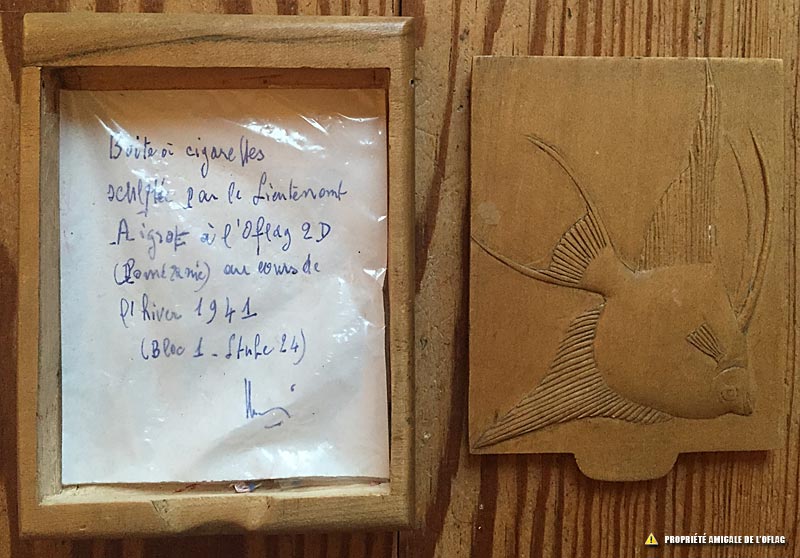 Boite à cigarettes
sculptée par le Lieutenant
Aigrot à l'Oflag 2D
(Poméranie) au cours de
l'hiver 1941
(Bloc 1 - Stube 24)
PROPRIÉTÉ AMICALE DE L'OFLAG